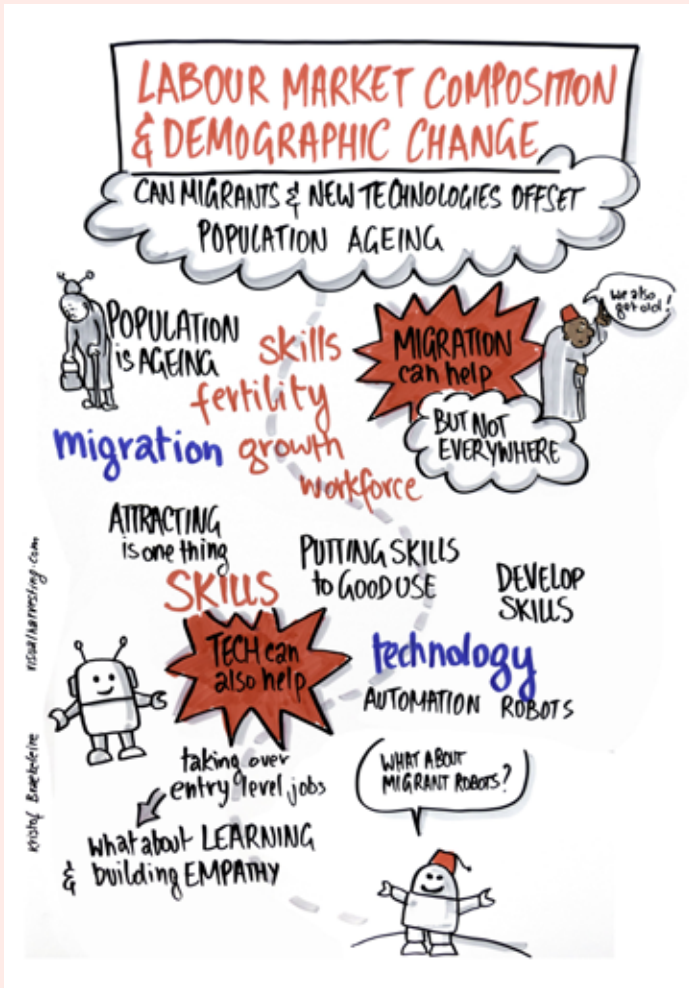 LABOUR MARKET COMPOSITION
& DEMOGRAPHIC CHANGE
CAN MIGRANTS & NEW TECHNOLOGIES OFFSET
POPULATION AGEING
POPULATION
is AGEING
skills
fertility
migration growth
workforce
MIGRATION
can help
we also
get old!
BUT NOT
EVERYWHERE
ATTRACTING
is one thing
SKILLS
PUTTING SKILLS
to GOOD USE
DEVELOP
SKILLS
TECH can
also help
technology
AUTOMATION ROBOTS
taking over
entry level jobs
what about LEARNING
& building EMPATHY
WHAT ABOUT
MIGRANT ROBOTS?
Kristof Braekeleire visualharvesting.com